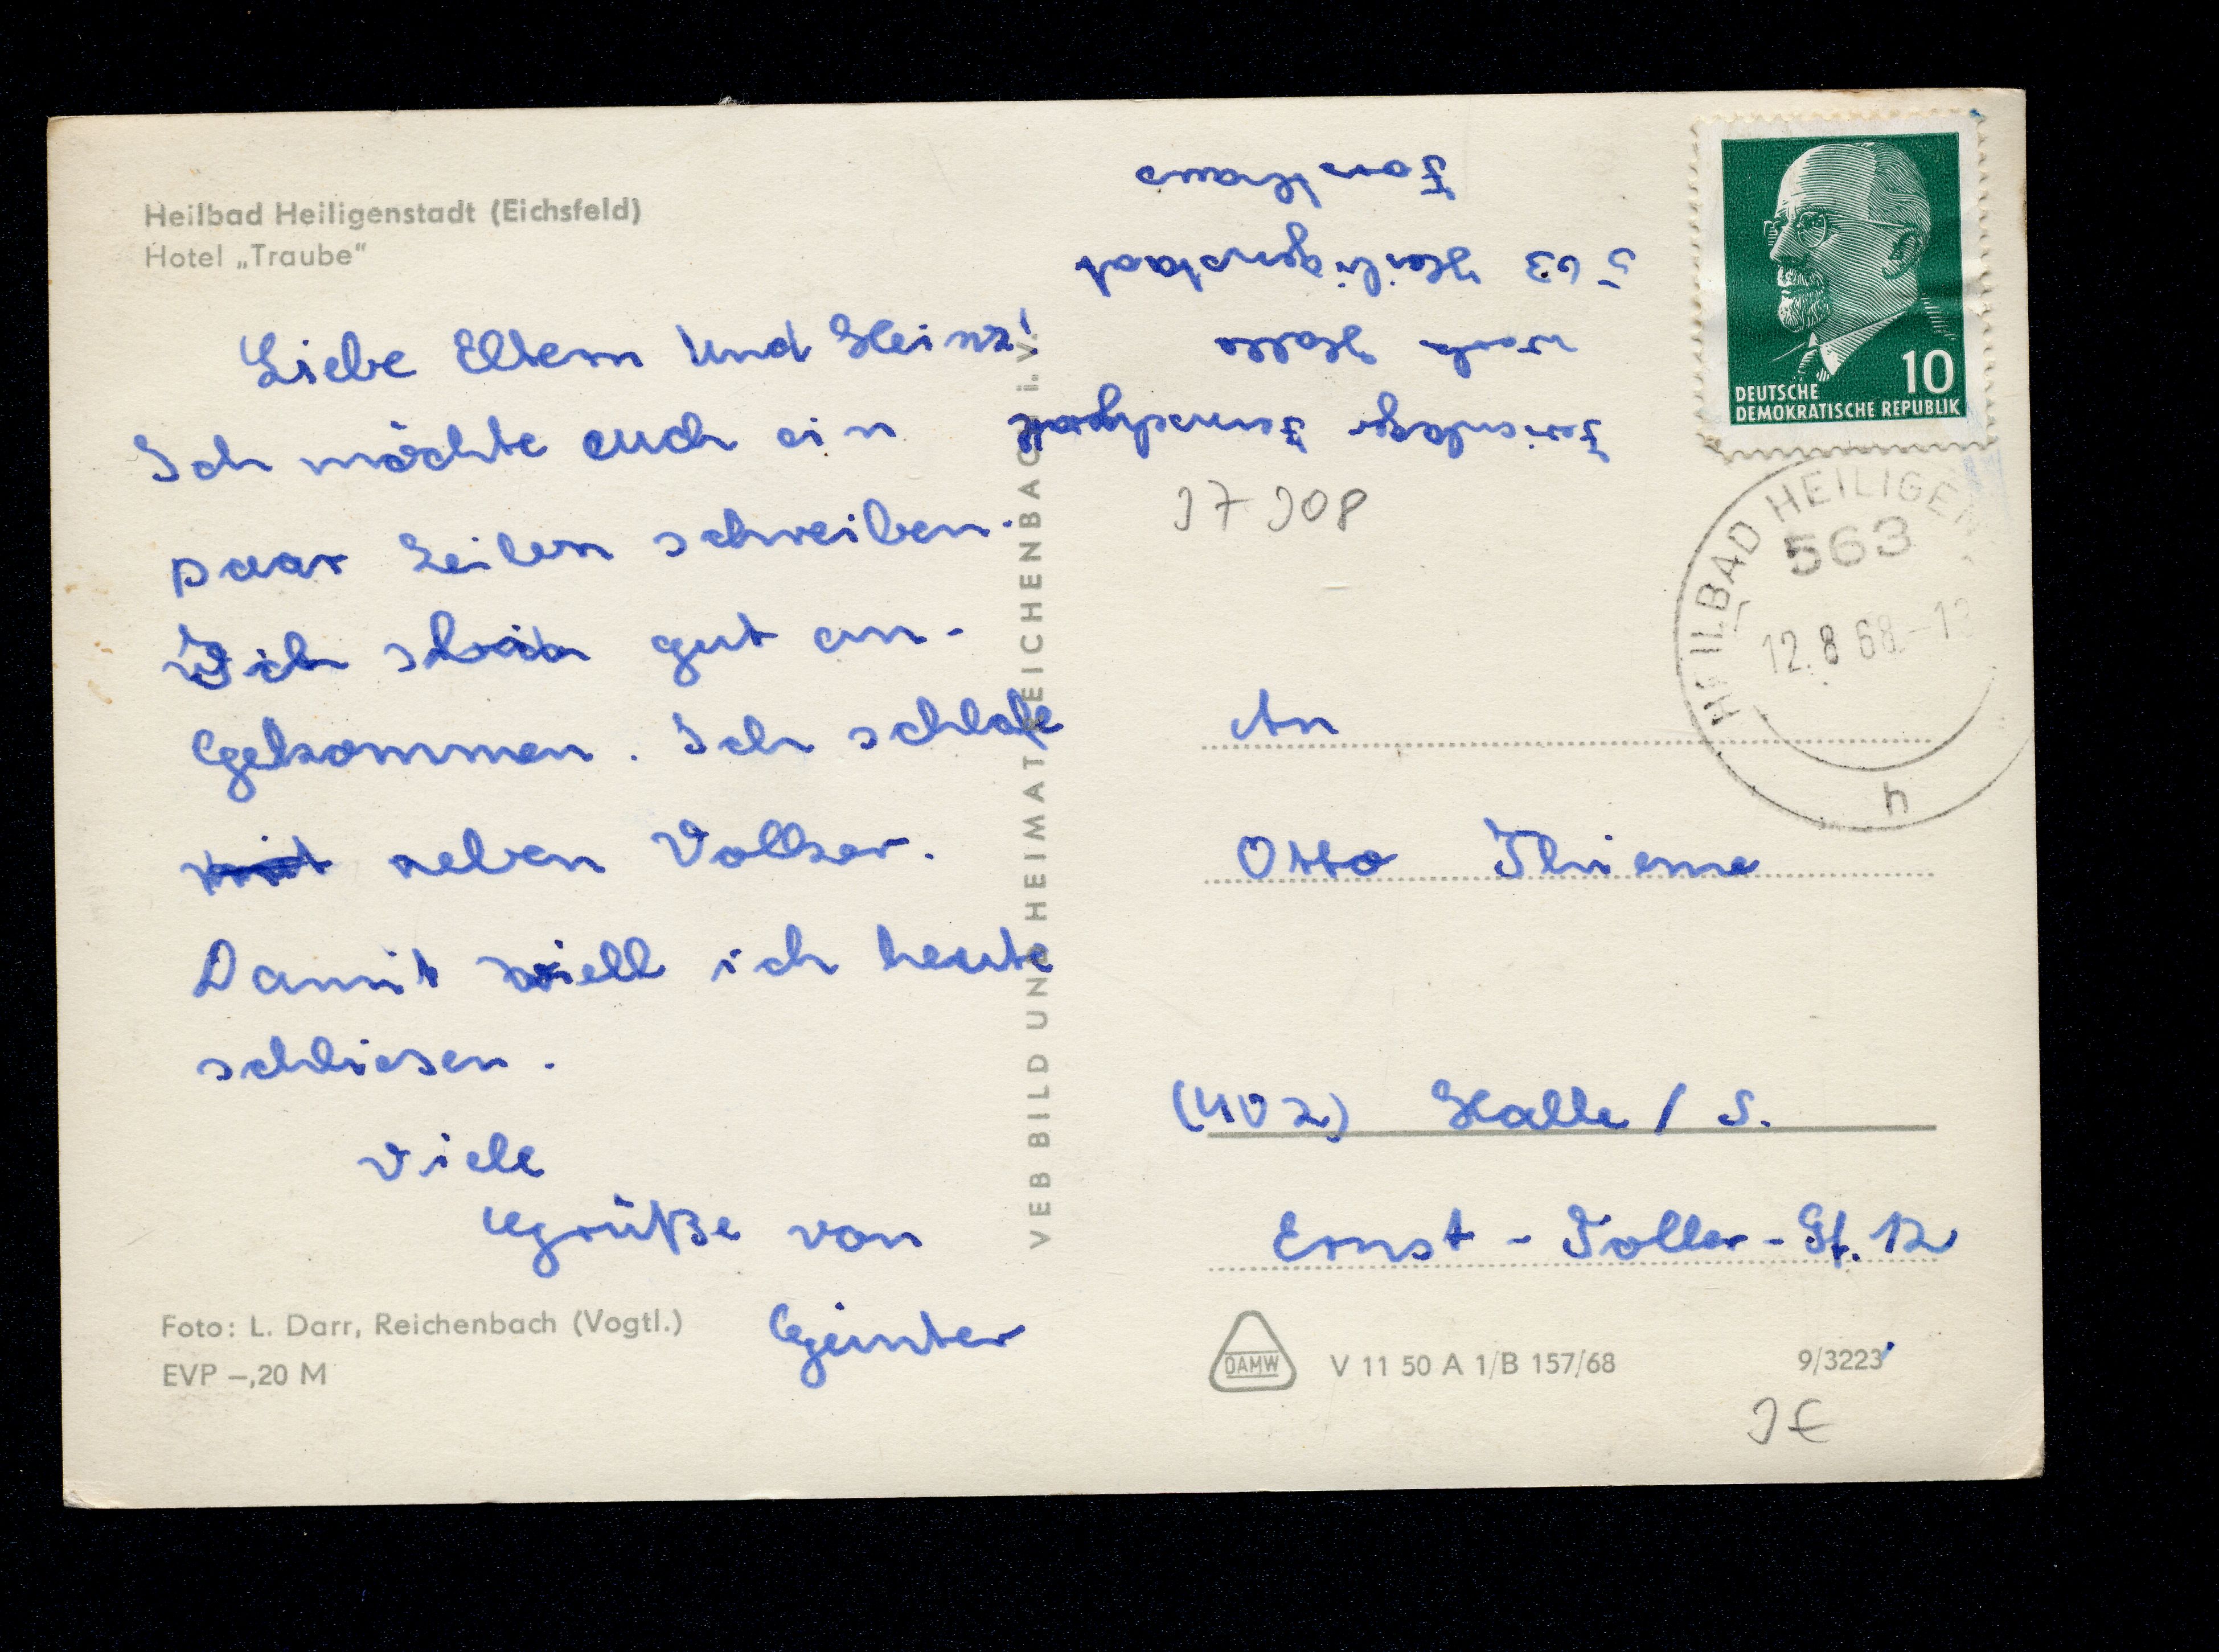 Heilbad Heiligenstadt (Eichsfeld)
Hotel „Traube“
Liebe Eltern und Heinz!
Ich möchte euch ein
paar Zeilen schreiben.
Ich gut an-
gekommen. Ich schlafe
neben Volker.
Damit will ich heute
schliesen.
Viele
Grüße von
Günter
Foto: L. Darr, Reichenbach (Vogtl.)
EVP –,20 M
VEB BILD UND HEIMAT REICHENBACH i. V.
Ferienlager
563 Heiligenstadt
Forsthaus
J7 J08
10
DEUTSCHE
DEMOKRATISCHE REPUBLIK
HEILBAD HEILIGEN
563
12.8.68.-1
h
An
Otto Thieme
(402) Halle / S.
Ernst-Toller-St. 12
DAMW
V 11 50 A 1/B 157/68
9/3223
1€